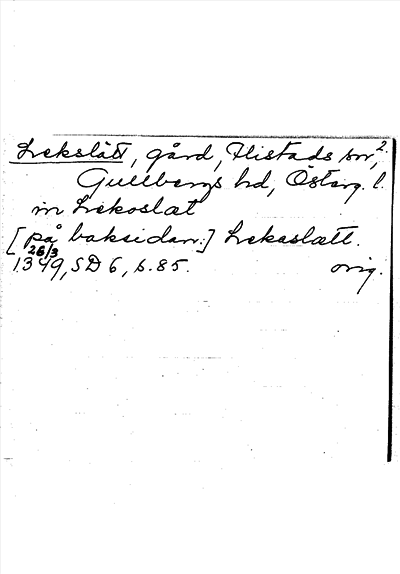 Lekslätt, gård, Flistads sn, 2.
Gullbergs hd, Österg. l.
in Lekoslæt
[på baksidan:] Lekaslætt.
26/3
1349, SD 6, s. 85. orig.